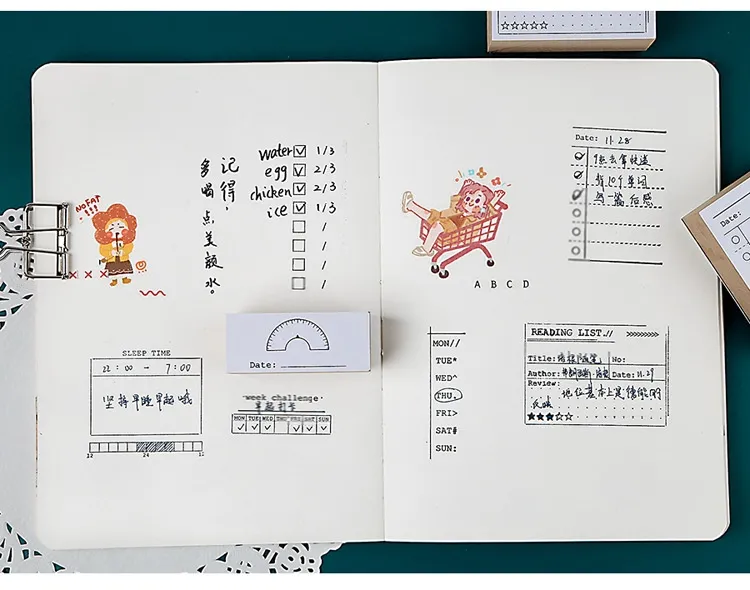 NO FAT
!!!
记得，
多喝点美颜水。
water 1/3
egg 2/3
chicken 2/3
ice 1/3
/
/
/
/
SLEEP TIME
22:00 → 7:00
坚持早睡早起哦
12 24 12
Date:
week challenge
早起打卡
MON TUE WED THU FRI SAT SUN
A B C D
Date: 11.28
背10个单词
写一篇后感
MON//
TUE*
WED^
THU.
FRI>
SAT#
SUN:
READING LIST.// >>>>>>>>>
Title: No:
Author: Date: 11.29
Review:
★★★☆☆
☆☆☆☆☆
Date: